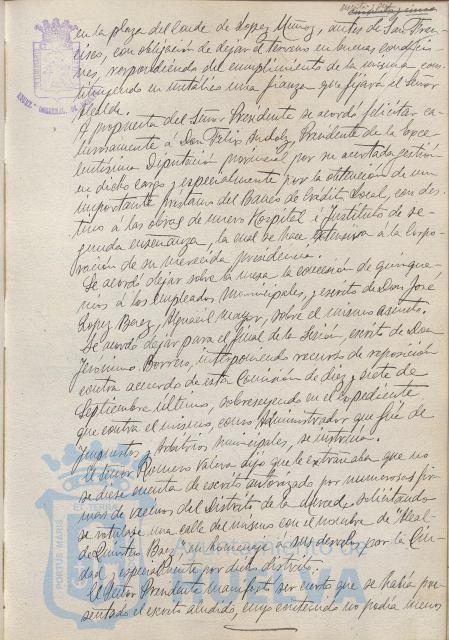 en la plaza del Conde de Lopez Muñoz, antes de San Fran-
cisco, con obligacion de dejar el terreno en buenas condicio-
nes, respondiendo del cumplimiento de la misma cons-
tituyendo en metálico una fianza que fijará el Señor
Alcalde.
A propuesta del Señor Presidente se acordó felicitar ca-
lurosamente á Don Felix Andolz, Presidente de la Exce-
lentísima Diputación provincial por su acertada gestión
en dicho cargo y especialmente por la obtención de un
importante préstamo del Banco de Crédito Local, con des-
tino á las obras de nuevo Hospital é Instituto de se-
gunda enseñanza, la cual se hace extensiva á la Corpo-
ración de su merecida presidencia.
Se acordó dejar sobre la mesa la concesión de quinque-
nios á los empleados municipales, y escrito de Don José
Lopez Perez, Alguacil Mayor, sobre el mismo asunto.
Se acordó dejar para el final de la sesión, escrito de Don
Jerónimo Borrero, interponiendo recurso de reposición
contra acuerdo de esta Comisión de diez y siete de
Septiembre último, sobreseyendo en el expediente
que contra el mismo, como Administrador que fué de
Impuestos y Arbitrios municipales, se instruia.
El Señor Romero Valera dijo que le extrañaba que no
se diese cuenta de escrito autorizado por numerosas fir-
mas de vecinos del Distrito de la Merced, solicitando
se rotulase una calle del mismo con el nombre de "Alcal-
de Quintero Baez", en homenaje á sus desvelos por la Ciu-
dad, y especialmente por dicho distrito.
El Señor Presidente manifestó ser cierto que se habia pre-
sentado el escrito aludido, cuyo contenido no podia menos
PORTUS MARIS ET TERRAE
Ayuntamiento de
HUELVA